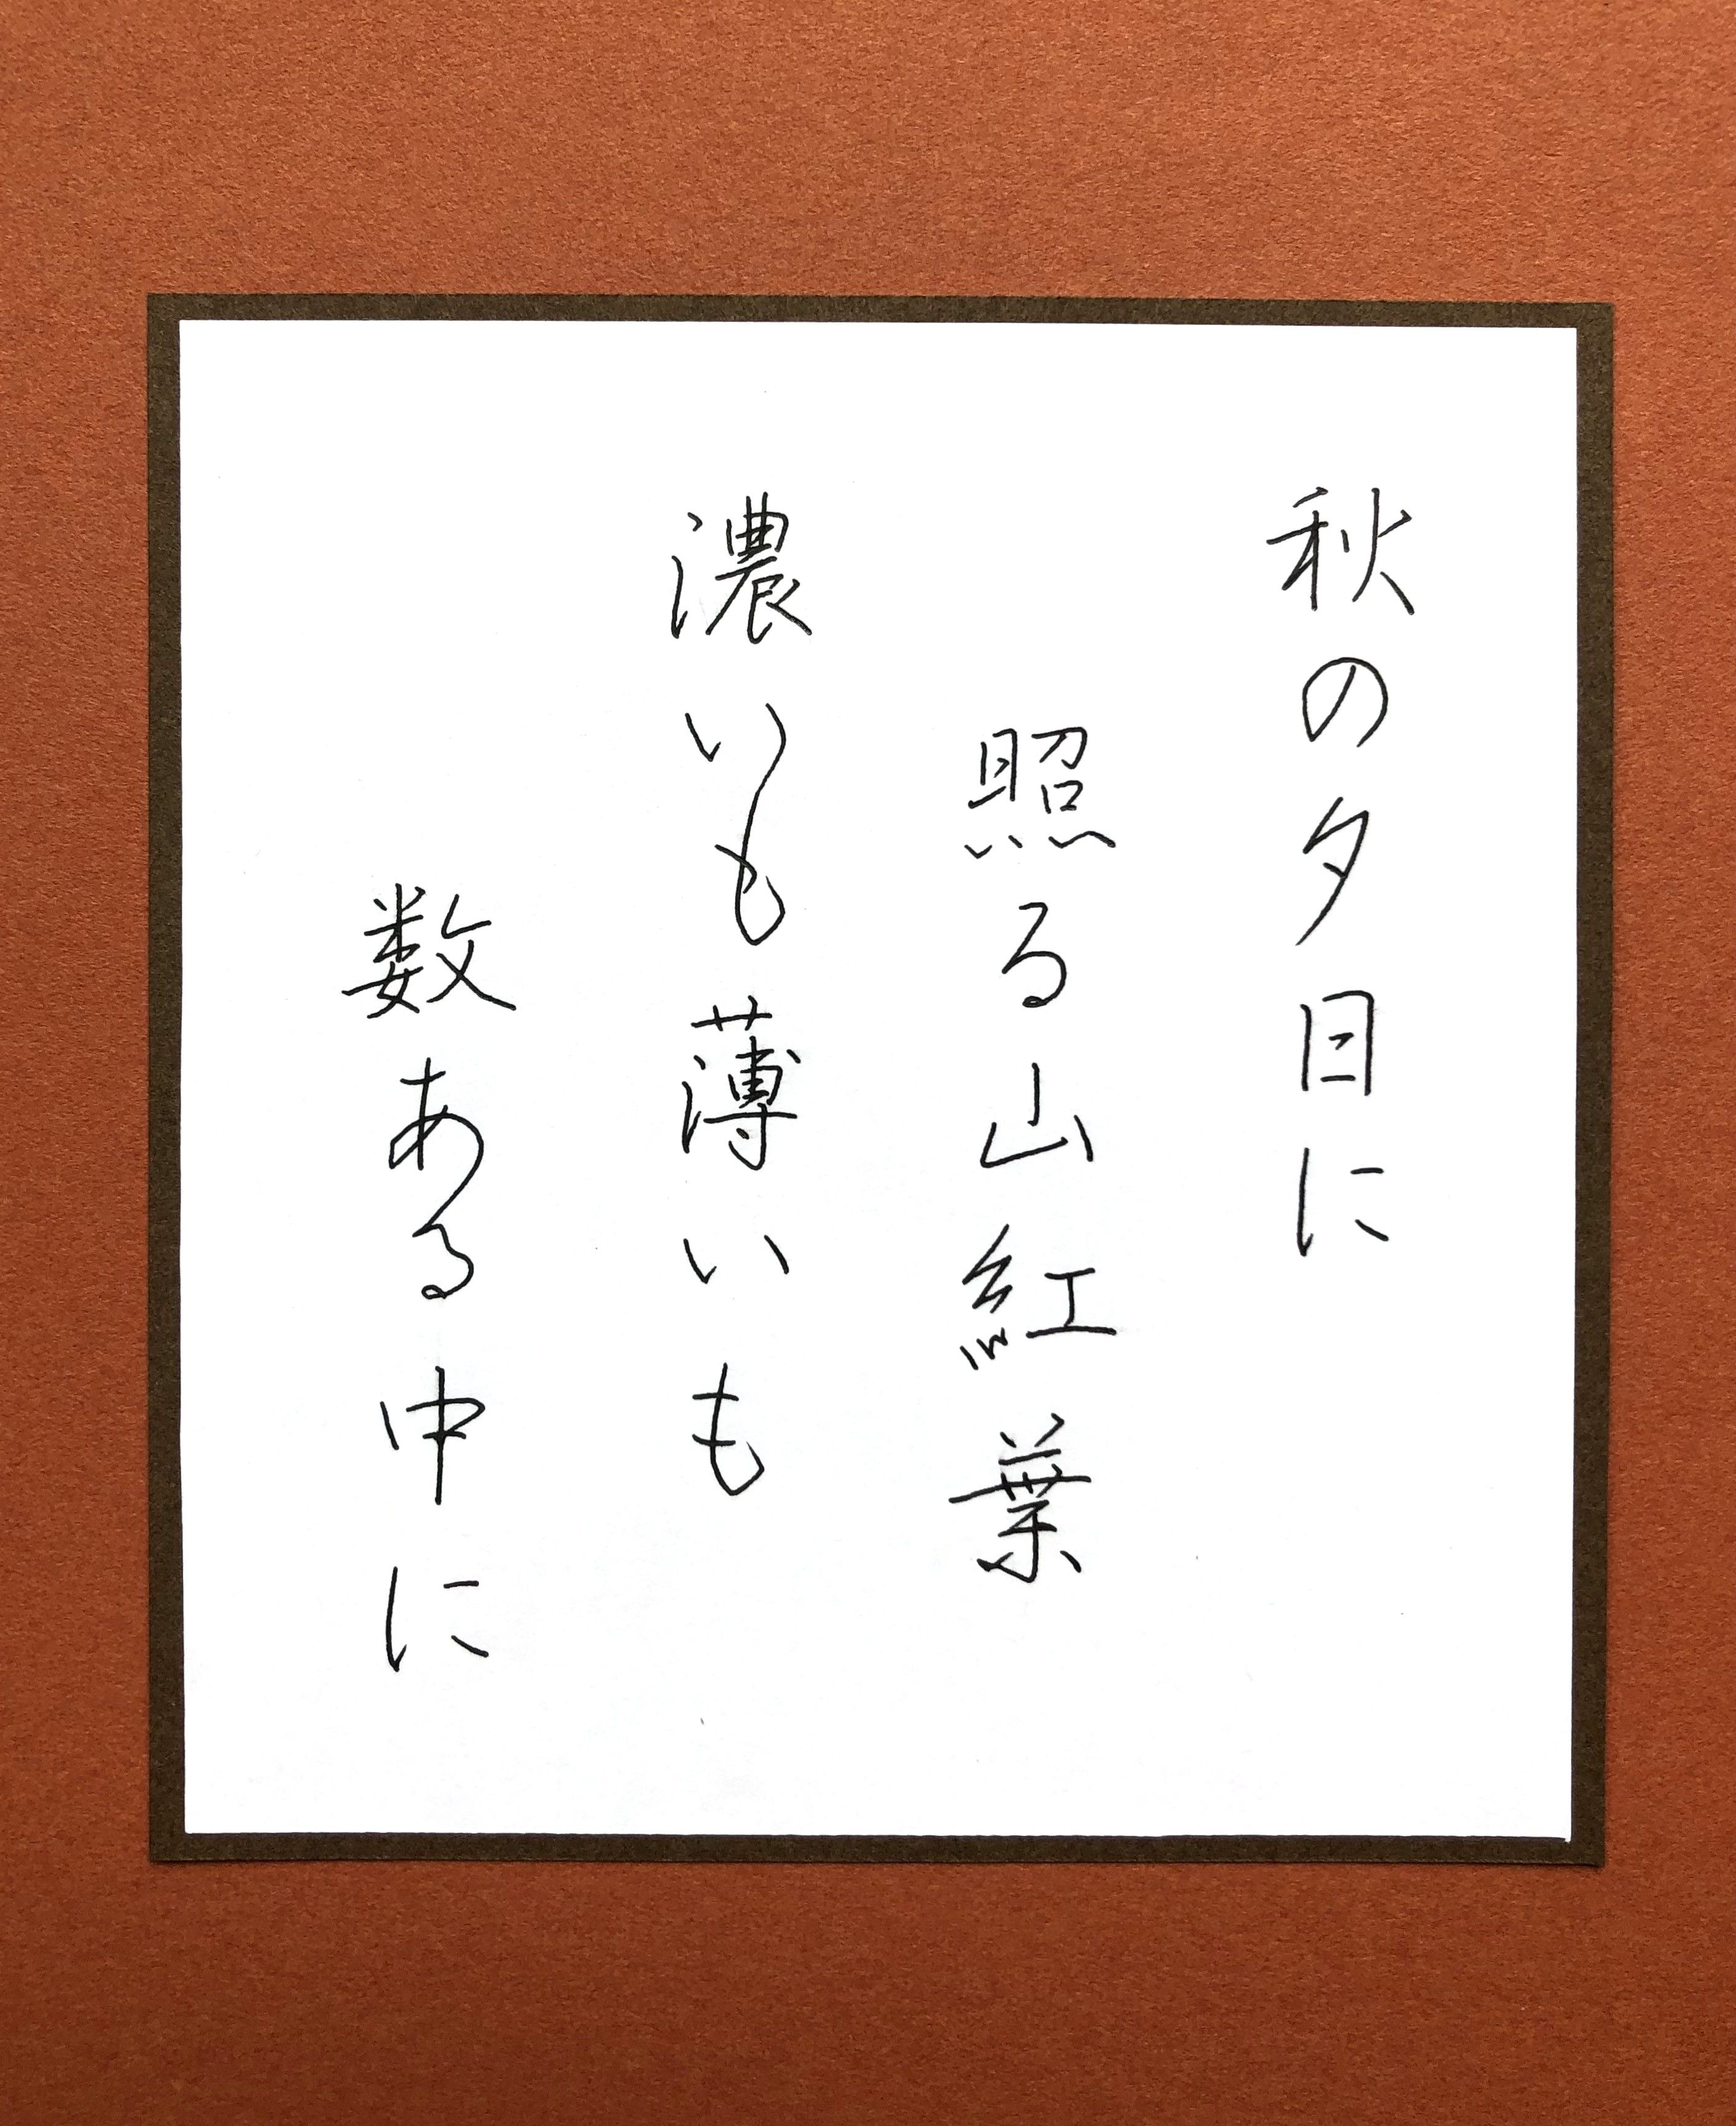 秋の夕日に
照る山紅葉
濃いも薄いも
数ある中に